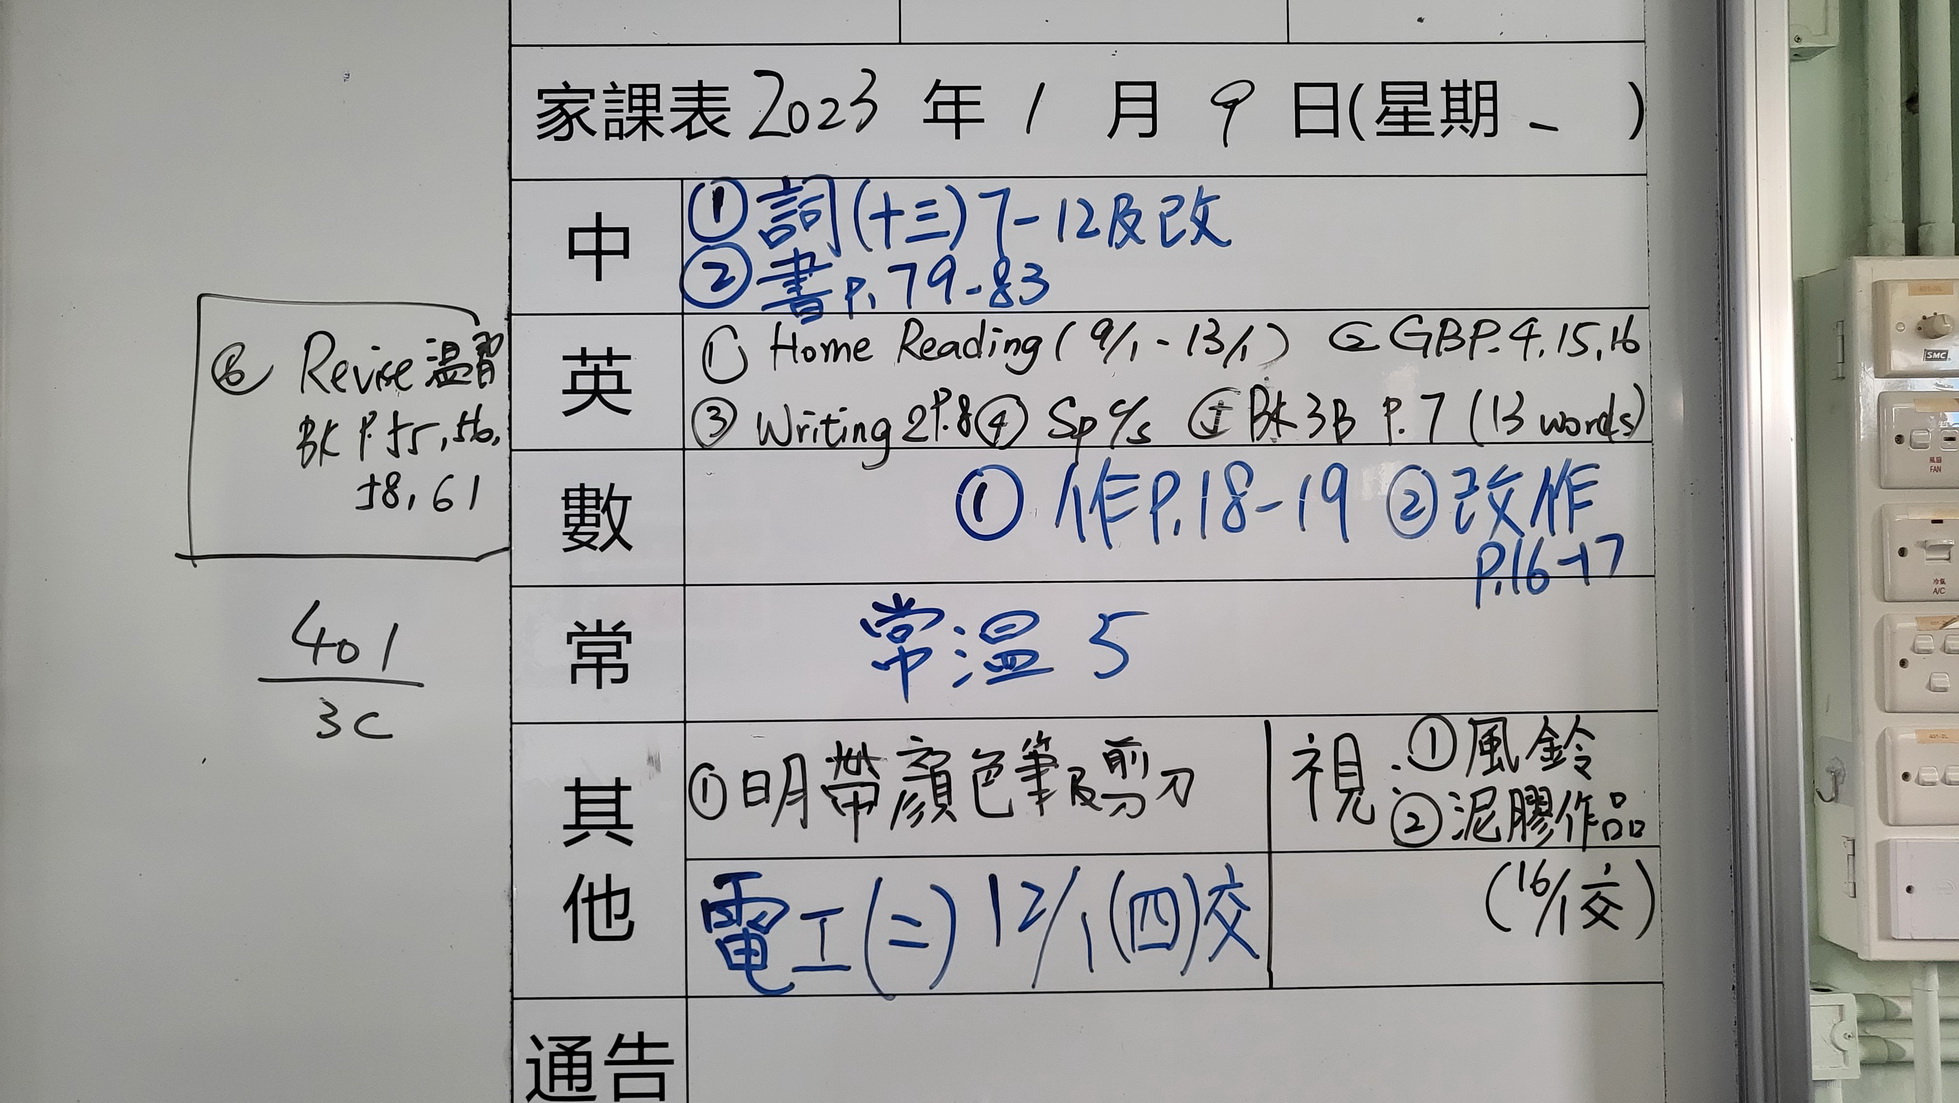 家課表 2023 年 1 月 9 日(星期 一 )
中
① 詞(十三) 7-12及改
② 書 P. 79-83
英
① Home Reading ( 9/1 - 13/1 ) ② GB P. 4, 15, 16
③ Writing 2 P. 8 ④ Sp c/s ⑤ Bk 3B P. 7 (13 words)
⑥ Revise 溫習
BK P. 55, 56,
58, 61
數
① 作 P.18-19 ② 改作
P.16-17
401
3C
常
常溫 5
其他
① 明帶顏色筆及剪刀
視: ① 風鈴
② 泥膠作品
(16/1交)
電工(二) 12/1 (四)交
通告
SMC
風扇
FAN
冷氣
A/C